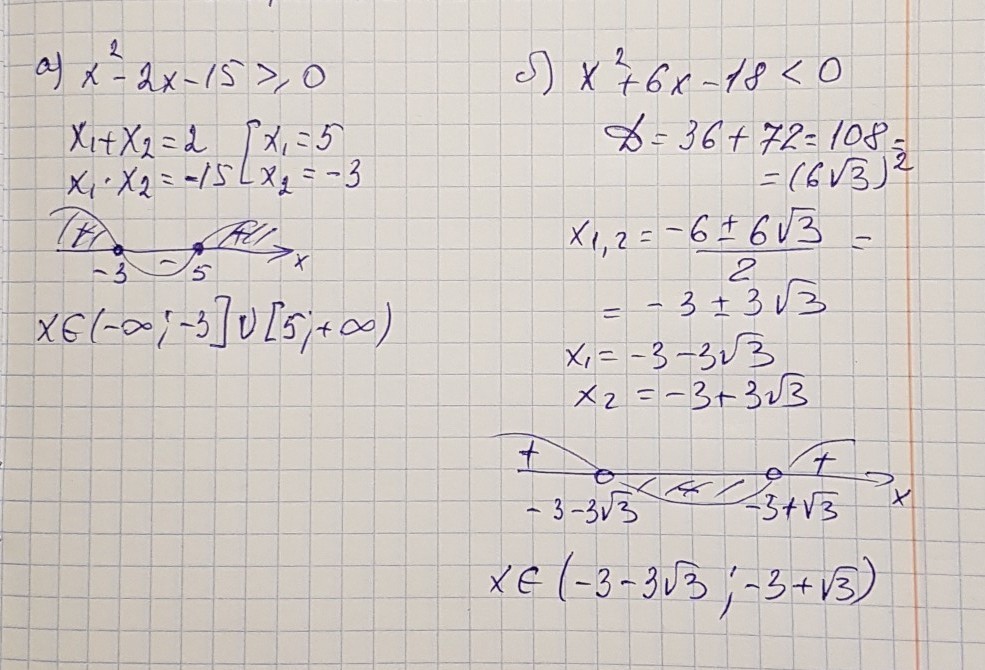 а) x² - 2x - 15 ⩾ 0
x₁ + x₂ = 2 [ x₁ = 5
x₁ · x₂ = -15 [ x₂ = -3
+ - +
-3 5 x
x ∈ (-∞; -3] ∪ [5; +∞)
б) x² + 6x - 18 < 0
D = 36 + 72 = 108 =
= (6√3)²
x₁,₂ = (-6 ± 6√3)/2 =
= -3 ± 3√3
x₁ = -3 - 3√3
x₂ = -3 + 3√3
+ - +
-3-3√3 -3+√3 x
x ∈ (-3 - 3√3; -3 + √3)